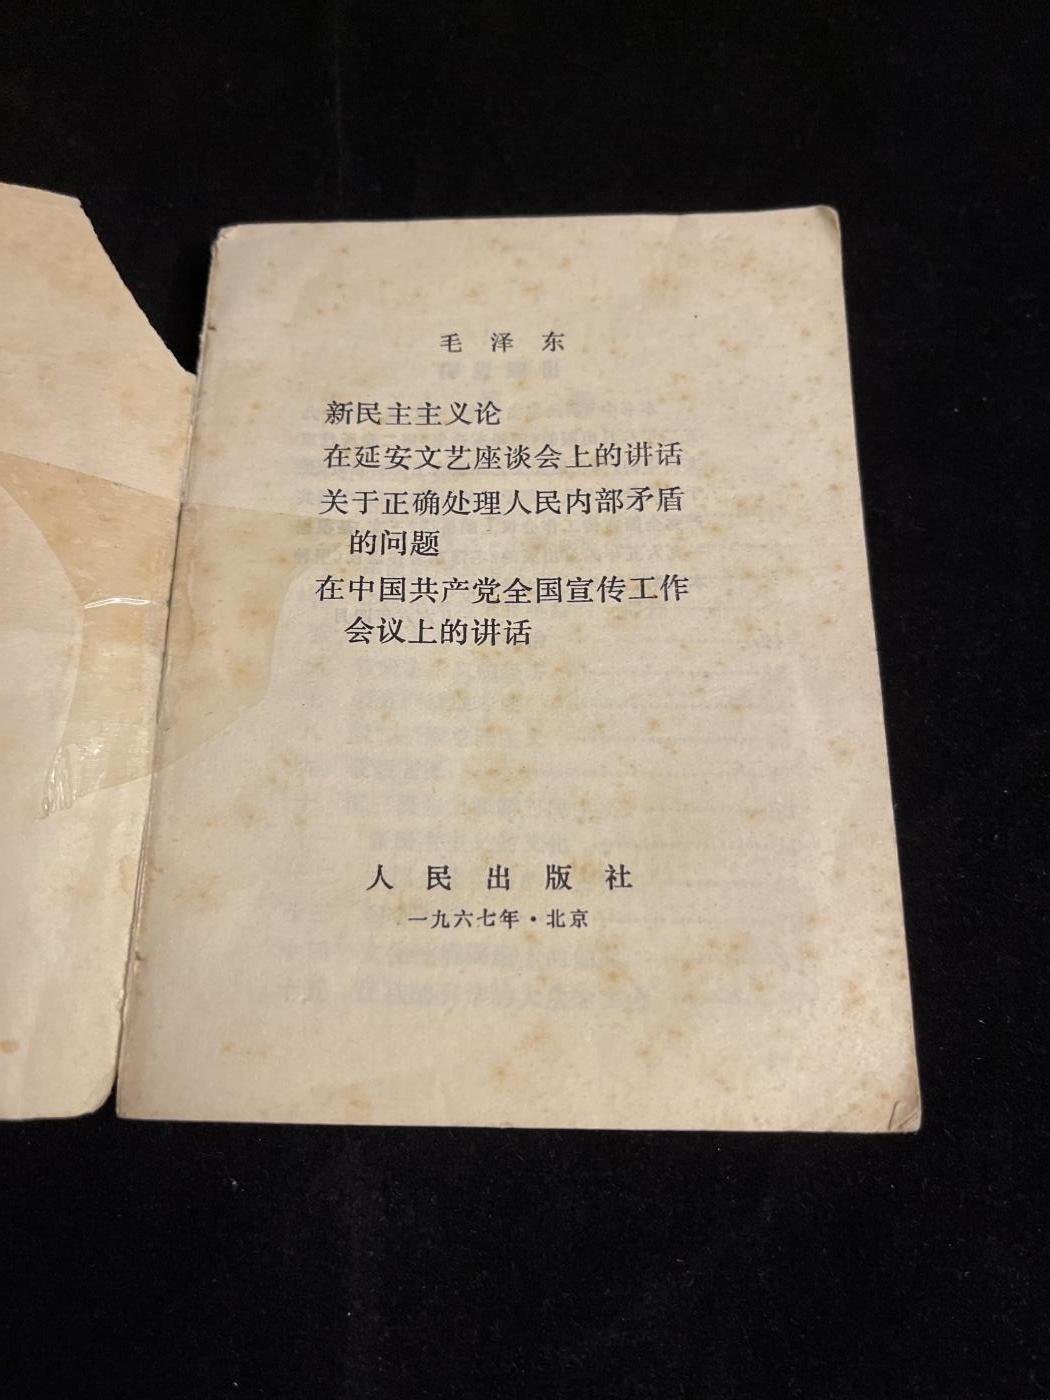 毛泽东
新民主主义论
在延安文艺座谈会上的讲话
关于正确处理人民内部矛盾
的问题
在中国共产党全国宣传工作
会议上的讲话
人民出版社
一九六七年·北京